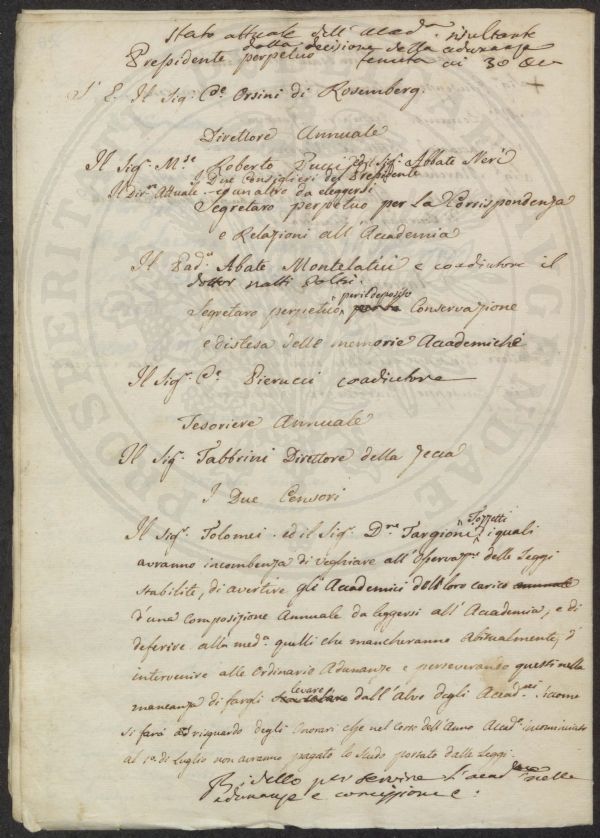 Stato attuale dell' Acad.a risultante
dalla decisione della adunanza
Presidente perpetuo tenuta ai 30
S. E. Il Sig.r C.te Orsini di Rosemberg
Direttore Annuale
Il Sig.r M.se Roberto Pucci ed il Sig.r Abbate Neri
I Due Consiglieri del Presidente
Il Dir.re Attuale e un altro da eleggersi
Segretaro perpetuo per la Corrispondenza
e Relazioni all' Accademia
Il Pad.e Abate Montelatici e coadiutore il
dottor
Segretaro perpetuo per il deposito Conservazione
e distesa delle memorie Accademiche
Il Sig.r C.e Pierucci coadiutore
Tesoriere Annuale
Il Sig.r Fabbrini Direttore della Zecca
I Due Censori
Il Sig.r Tolomei ed il Sig.r D.re Targioni Tozzetti i quali
avranno incombenza di veghiare all' Osservaz.ne delle Leggi
stabilite, di avertire gli Academici del loro carico annuale
d'una composizione Annuale da leggersi all' Accademia, e di
deferire alla med.a quelli che mancheranno abitualmente, d'
intervenire alle Ordinarie Adunanze e perseverando questi nella
mancanza di fargli levare dall' Alvo degli Accad.ci, sicome
si farà a risguardo degli Onorari che nel Corso dell' Anno Accad.o incominciato
al 1.o di Luglio non avranno pagato lo scudo portato dalle Leggi.
Bidello per servire l' acad.a nelle
adunanze e